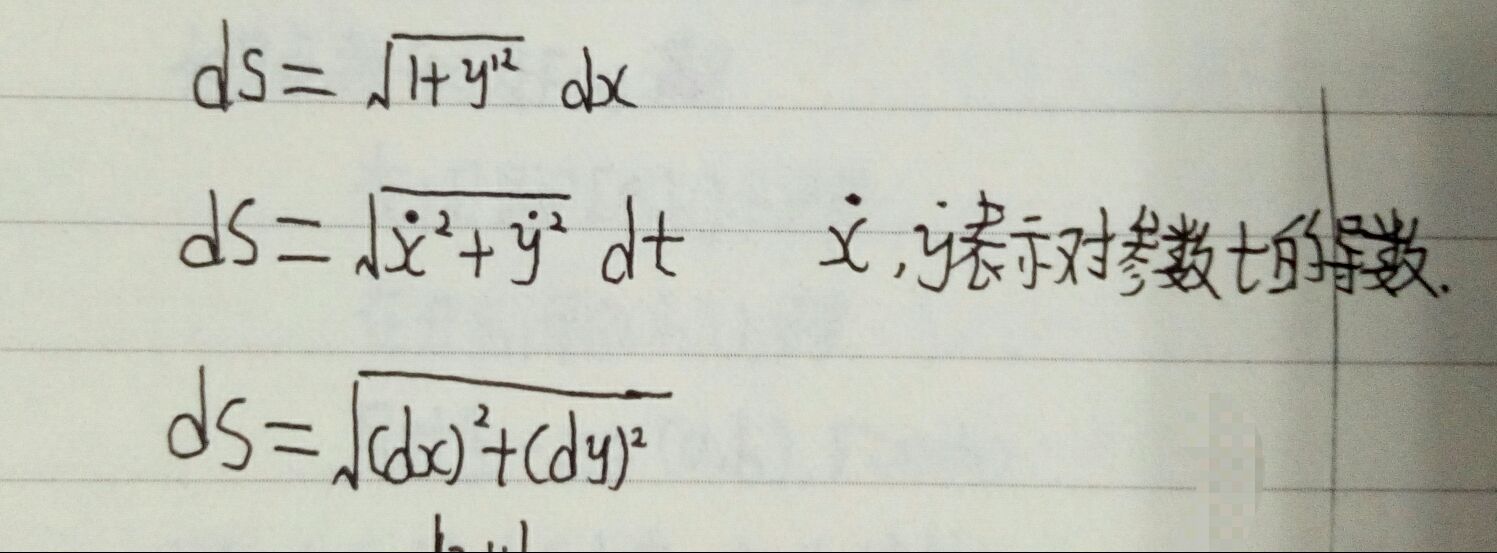 ds = √(1+y'²) dx
ds = √(ẋ²+ẏ²) dt ẋ,ẏ表示对参数t的导数.
ds = √((dx)²+(dy)²)